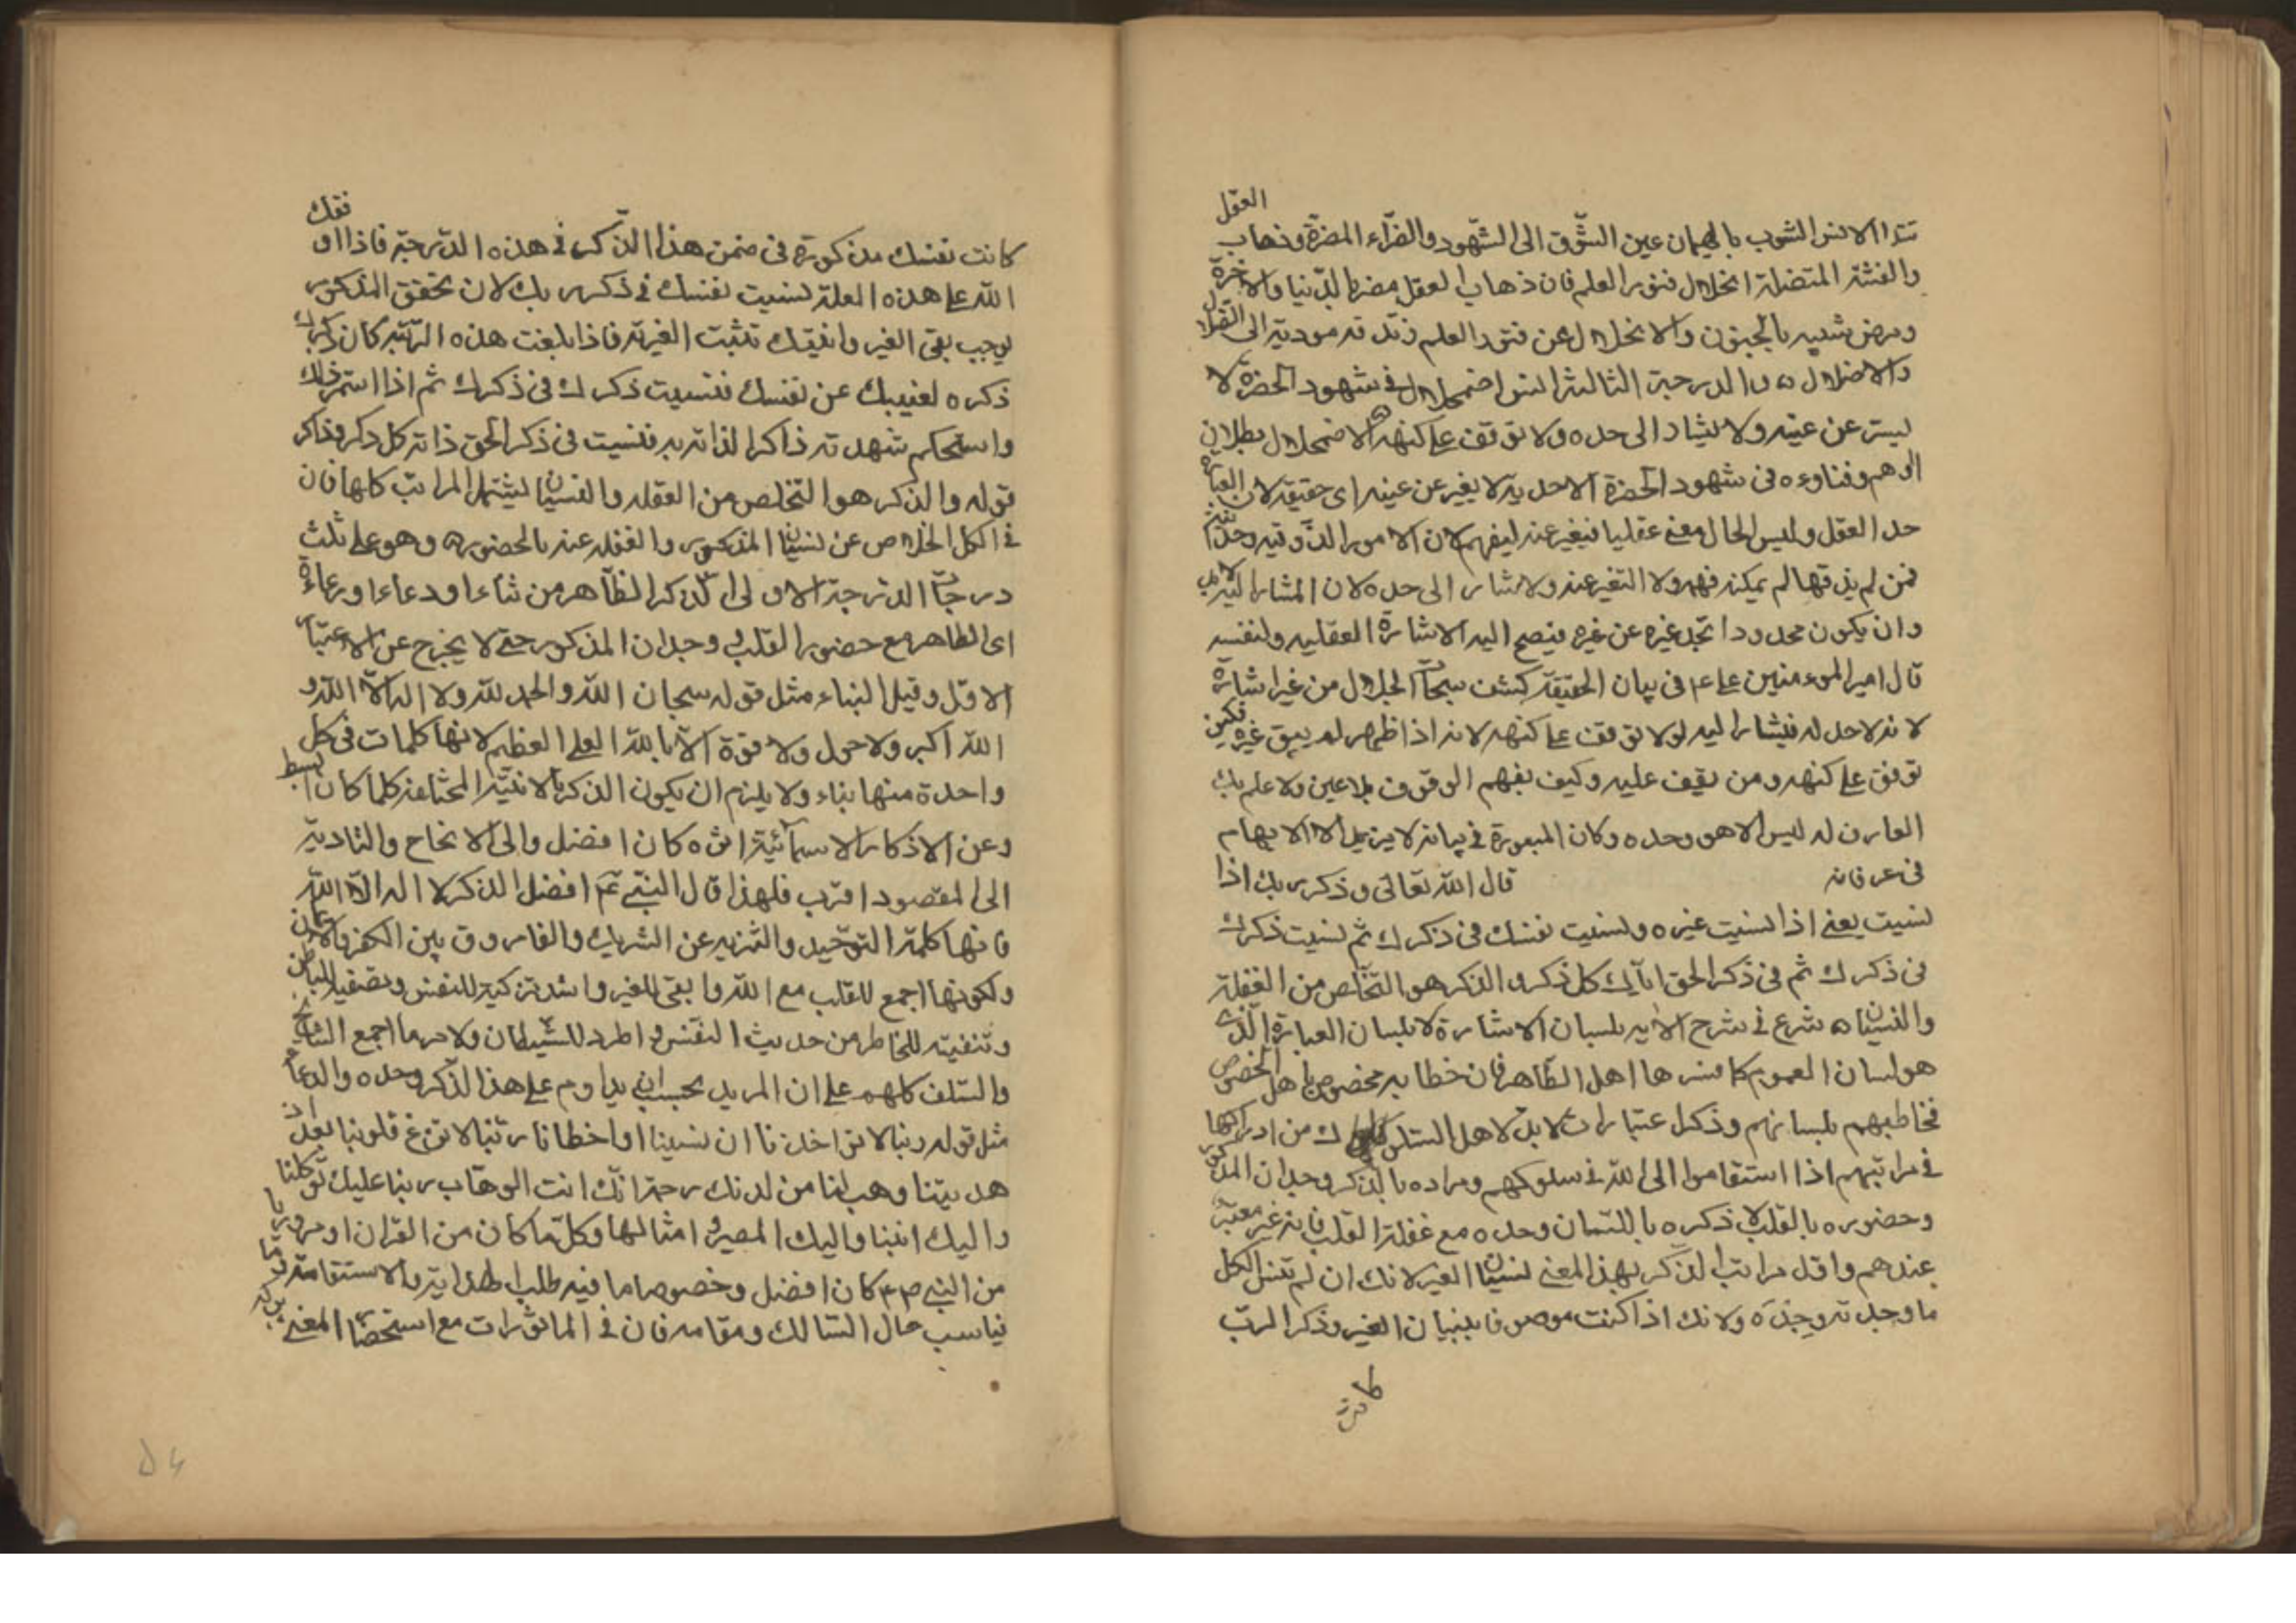 الانس الشوب بالهيمان عين الشّوق الى الشّهود والضرّاء المضرّة وذهاب العقل
والفتنة المتضلة انحلال فتور العلم فان ذهاب العقل مضر بالدّنيا والاخرة
ومرض شبيه بالجنون والانحلال عن قيود العلم زندقة مودية الى
والاضلال ه والدرجة الثالثة انس اضمحلال فى شهود الحضرة لا
ليس عن عينه ولا يشار الى حده ولا توقف على كنهه ه الاضمحلال بطلان
الوهم وفناوءه فى شهود الحضرة الاحدية لا يغبر عن عينه اى حقيقة لان العبارة
حد العقل وليس الحال معنى عقليا فيغبر عنه ليفهم لان الامور الذّوقية وجدا
فمن لم يذقها لم يمكنه فهمه ولا التغبر عنه ولا يشار الى حده لان المشار اليه
وان يكون محدودا تجد غيره عن غيره فيصح اليه الاشارة العقليه ولنفسه
قال امير الموءمنين على ع فى بيان الحقيقة كشف سبحات الجلال من غير اشارة
لانه لاحد له فيشار اليه لو لا توقف على كنهه لانه اذا ظهر لم يبق غيره فكيف
توقف على كنهه ومن يقف عليه وكيف يفهم الوقوف بلا عين ولا علم بك
العارف له ليس الا هو وحده وكان المبعورة فى بيانه لا يزيل الا الابهام
فى عرفانه قال الله تعالى وذكر ربك اذا
نسيت يعنى اذا نسيت غيره ونسيت نفسك فى ذكرك ثم نسيت ذكرك
فى ذكرك ثم فى ذكر الحق اياك كل ذكر والذكر هو التخّلص من الغفلة
والنسيان ه شرع فى شرح الآيه بلسان الاشارة لا بلسان العبارة الّذى
هو لسان العموم كما فسرها اهل الظّاهر فان خطابه مخصوص باهل الخصوص
فخاطبهم بلسانهم وذكر اعتبارات لا بدّ لاهل السلوك من ادراكها
فى مراتبهم اذا استقاموا الى الله فى سلوكهم ومراده بالذكر وجدان المذكور
وحضوره بالقلب لا ذكره باللسان وحده مع غفلة القلب فانه غير معتبر
عندهم واقل مراتب الذّكر بهذا المعنى نسيان الغير لانك ان لم تنس الكل
ما وجدته وجدَه ولانك اذا كنت موصوفا بنسيان الغير وذكر الربّ
كانت
كانت نفسك مذكورة فى ضمن هذا الذّكر فى هذه الدّرجة فاذا
الله على هذه العلة نسيت نفسك فى ذكر ربك لان تحقق المذكور
يوجب بقى الغير وانيّتك تثبت الغيرية فاذا بلغت هذه الرّتبة كان ذكرك
ذكره لغيبك عن نفسك فنسيت ذكرك فى ذكرك ثم اذا استمر ذلك
واستحكم شهدته ذاكرا لذاته به فنسيت فى ذكر الحق ذاته كل ذكر وذاكر
قوله والذكر هو التخلص من الغفله والنسيان ليشتمل المراتب كلها فان
فى الكل الخلاص عن نسيان المذكور والغفله عنه بالحضور ه وهو على ثلث
درجات الدّرجة الاولى الذّكر الظّاهر من ثناء او دعاء او رعاءة
اى الظاهر مع حضور القلب وجدان المذكور حتى لا يخرج عن الاعتبار
الاوّل وقيل الثناء مثل قوله سبحان الله والحمد لله ولا اله الاّ الله و
الله اكبر ولا حول ولا قوة الاّ بالله العلى العظيم لانها كلمات فى كل
واحدة منها ثناء ولا يلزم ان يكون الذكر بالاثنية المختلفه كلما كان ابسط
وعن الاذكار الاسمائية كان افضل والى الانجاح والتادية
الى المقصود اقرب فلهذا قال النبّى ع م افضل الذكر لا اله الاّ الله
فانها كلمة التوحّيد والتنزيه عن الشريك والفاروق بين الكفر والايمان
ولكونها اجمع للقلب مع الله وابقى للغير واشد تزكية للنفس وتصفية للباطن
وتنقية للخاطر من حديث النفس واطرد للشّيطان ولامر ما اجمع المشايخ
والسّلف كلهم على ان المريد يجب ان يداوم على هذا الذّكر وحده والدعاء
مثل قوله ربنا لا تؤاخذنا ان نسينا او اخطانا ربّنا لا تزغ قلوبنا بعد اذ
هديتنا وهب لنا من لدنك رحمة انّك انت الوهّاب ربنا عليك توكلنا
واليك انبنا واليك المصير وامثالها وكلّما كان من القران او مرويا
من النبى ص م كان افضل وخصوصا ما فيه طلب الهداية والاستقامة وما
يناسب حال السّالك ومقامه فان فى الماثورات مع استحضار المعنى بركة